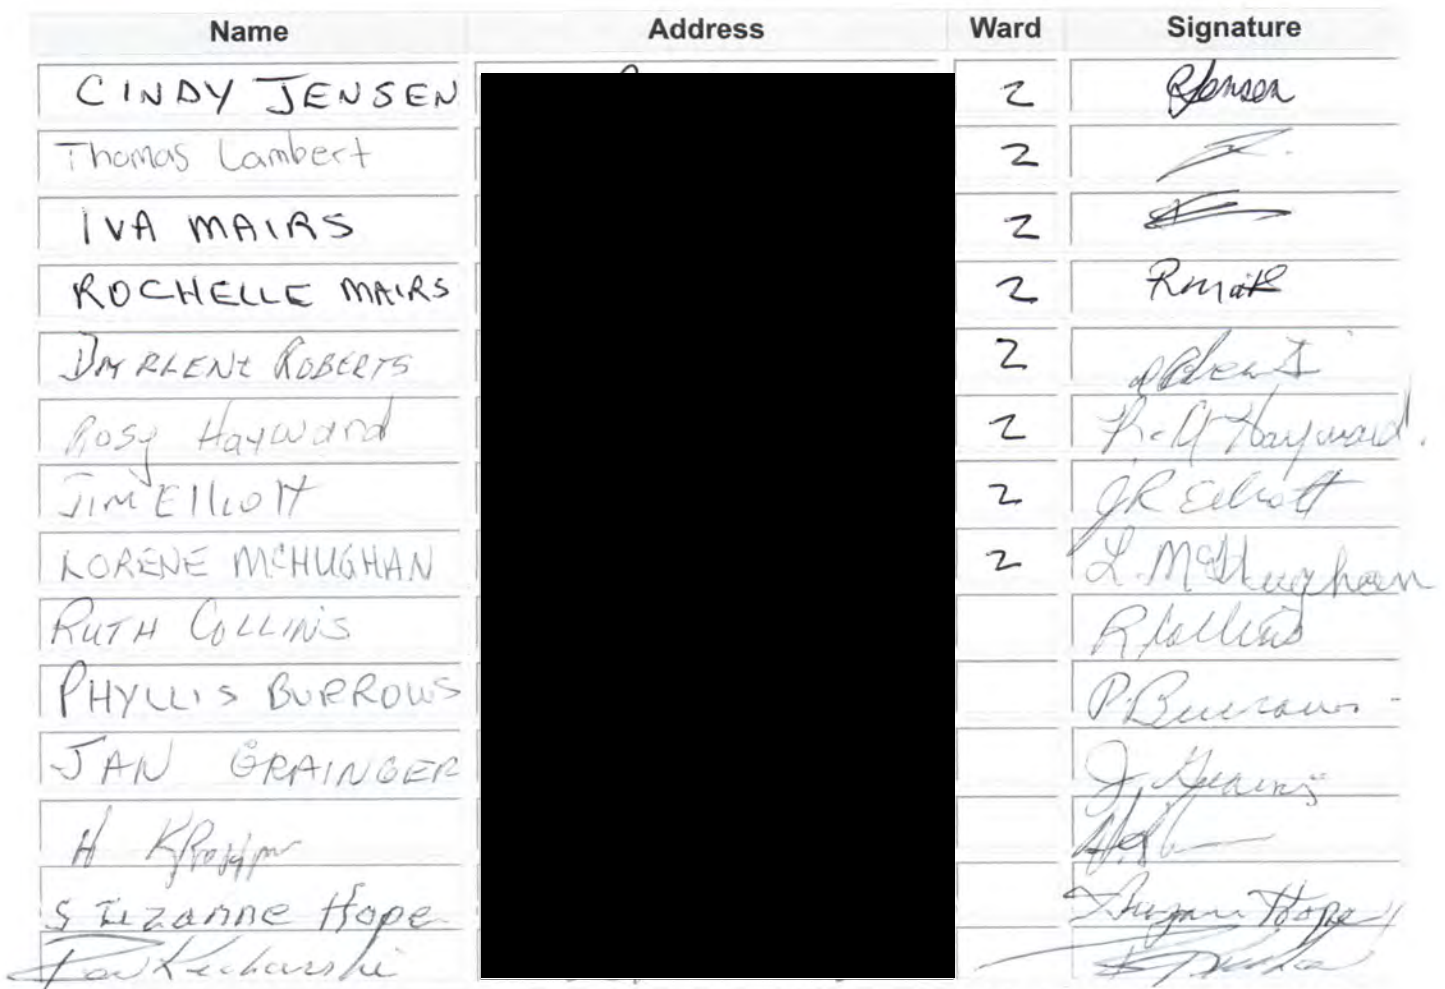 Name Address Ward Signature
CINDY JENSEN 2 RJensen
Thomas Lambert 2
IVA MAIRS 2
ROCHELLE MAIRS 2
DARLENE ROBERTS 2
Rosy Hayward 2 R. A Hayward.
Jim Elliott 2 JR Elliott
LORENE McHUGHAN 2 L. McHughan
RUTH COLLINS R Collins
PHYLLIS BURROWS P. Burrows
JAN GRAINGER
H
Suzanne Hope Suzanne Hope